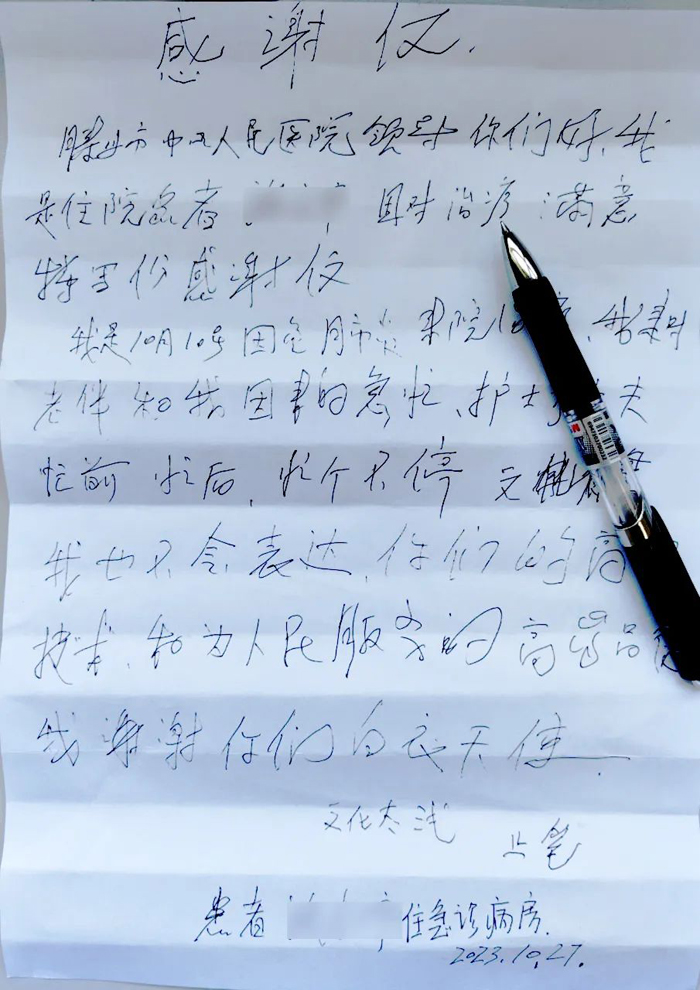 感谢仪.
滕州市中心人民医院领导你们好,我
是住院患者 因对治疗满意
特写份感谢仪
我是10月10号因急 来院
老伴和我因 的急忙、护士 夫
忙前忙后,忙个不停 文
我也不会表达,你们的高
技术,和为人民服务的高尚品
我谢谢你们白衣天使.
文化太浅 止笔
患者 住急诊病房.
2023.10.27.